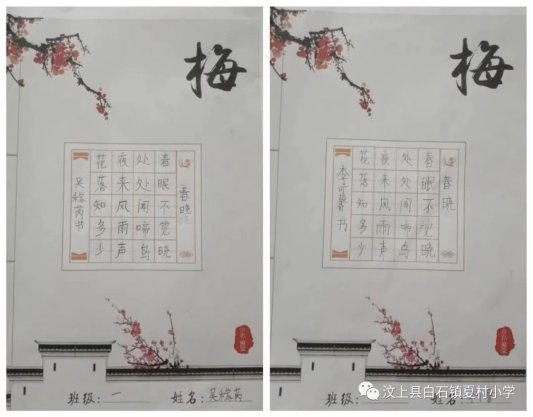 梅
春晓
春眠不觉晓
处处闻啼鸟
夜来风雨声
花落知多少
班级：一 姓名：
梅
春晓
春眠不觉晓
处处闻啼鸟
夜来风雨声
花落知多少
班级：
汶上县白石镇夏村小学